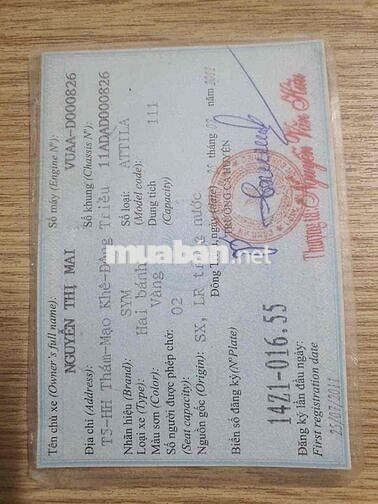 Tên chủ xe (Owner's full name):
NGUYỄN THỊ MAI
Địa chỉ (Address):
T5-HH Thám-Mạo Khê-Đông Triều
Nhãn hiệu (Brand): SYM
Loại xe (Type): Hai bánh
Màu sơn (Color): Vàng
Số người được phép chở: 02
(Seat capacity):
Nguồn gốc (Origin): SX, LR trong nước
Biển số đăng ký (Nº Plate)
14Z1-016.55
Đăng ký lần đầu ngày:
First registration date
25/07/2011
Số máy (Engine Nº): VUAA-D000826
Số khung (Chassis Nº): 11ADAD000826
Số loại: ATTILA
(Model code):
Dung tích 111
(Capacity)
Đông Triều, ngày (date) tháng năm 2011
TRƯỞNG CA HUYỆN
Thượng tá: Nguyễn Văn
muaban.net